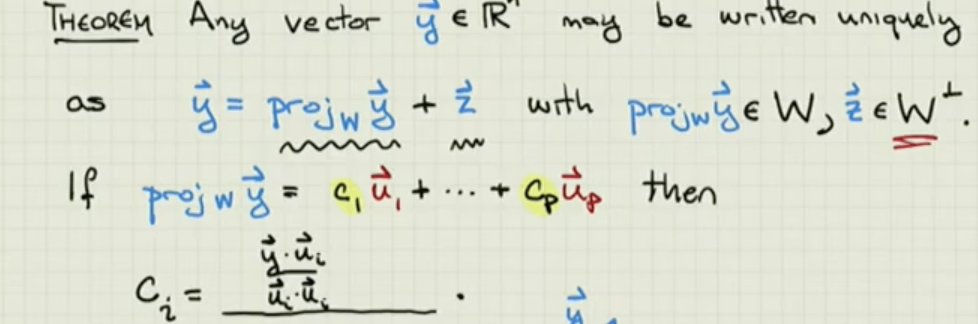 THEOREM Any vector y⃗ ∈ ℝⁿ may be written uniquely
as y⃗ = proj_W y⃗ + z⃗ with proj_W y⃗ ∈ W, z⃗ ∈ W^⊥.
If proj_W y⃗ = c₁u⃗₁ + ... + c_p u⃗_p then
c_i = (y⃗·u⃗_i)/(u⃗_i·u⃗_i) .
y⃗